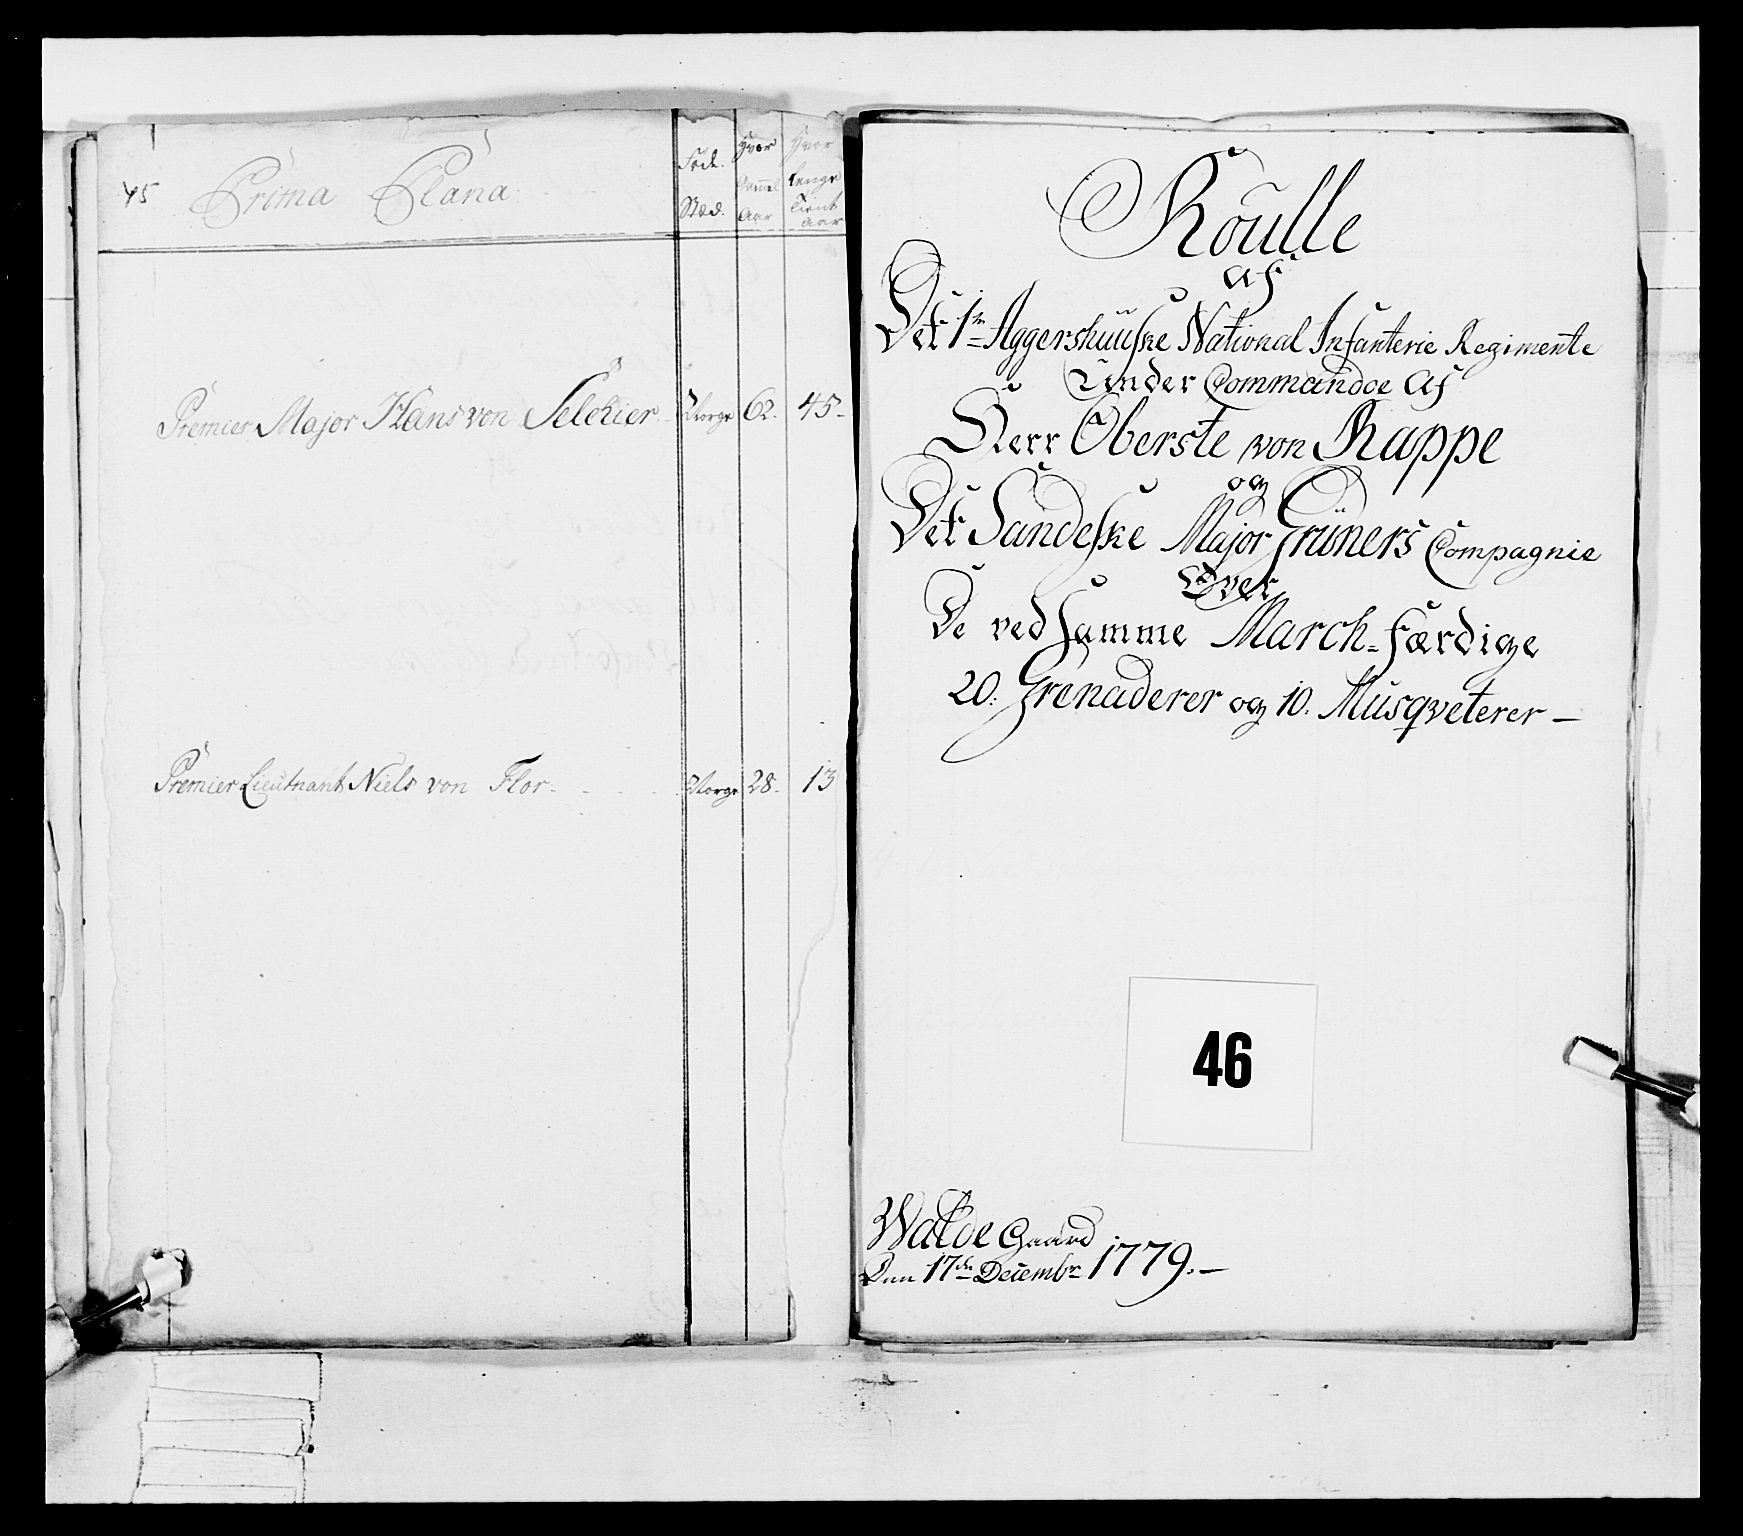 45 Prima Plana
Føde Stæd.
Hvor Gammel Aar
Hvor Lenge Tient Aar
Premier Major Hans von Selchier Norge 62. 45-
Premier Lieutnant Niels von Flor- Norge 28. 13
Roulle
af
Det 1te Aggershuuske National Infanterie Regimente
Under Commandoe Af
Herr Oberste von Rappe
og
Det Sandeske Major Grüners Compagnie
Over
De ved samme March-færdige
20. Grenaderer og 10. Musqveterer —
46
Walde Gaard
Den 17de Decembr 1779.—